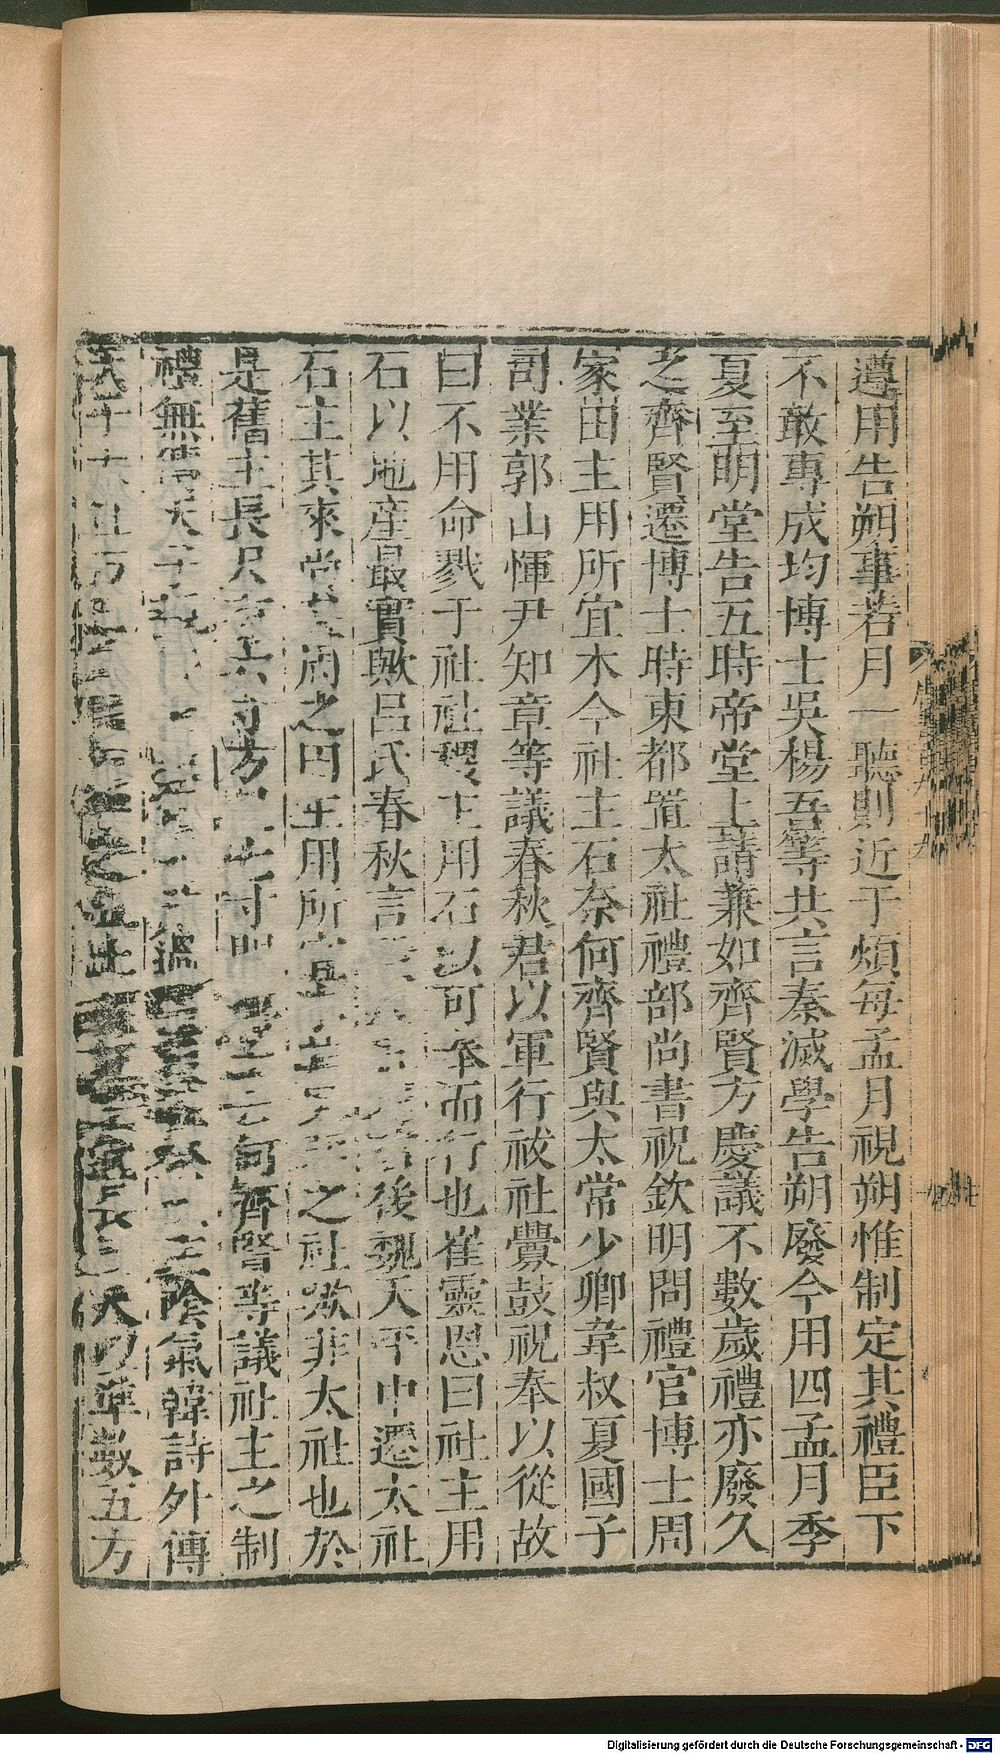 遵用告朔事若月一聽則近于煩每孟月視朔惟制定其禮臣下
不敢專成均博士吳楊吾等共言秦滅學告朔廢今用四孟月季
夏至明堂告五時帝堂上請兼如齊賢方慶議不數歲禮亦廢久
之齊賢遷博士時東都置太社禮部尚書祝欽明問禮官博士周
家田主用所宜木今社主石奈何齊賢與太常少卿韋叔夏國子
司業郭山惲尹知章等議春秋君以軍行祓社釁鼓祝奉以從故
曰不用命戮于社社稷主用石以可奉而行也崔靈恩曰社主用
石以地産最實歟呂氏春秋言後魏天平中遷太社
石主其來尚矣周之田主用所宜木其民間之社歟非太社也於
是舊主長尺有六寸方尺七寸問何齊賢等議社主之制
禮無傳天子親陰氣韓詩外傳
長五尺以準數五方
Digitalisierung gefördert durch die Deutsche Forschungsgemeinschaft - DFG